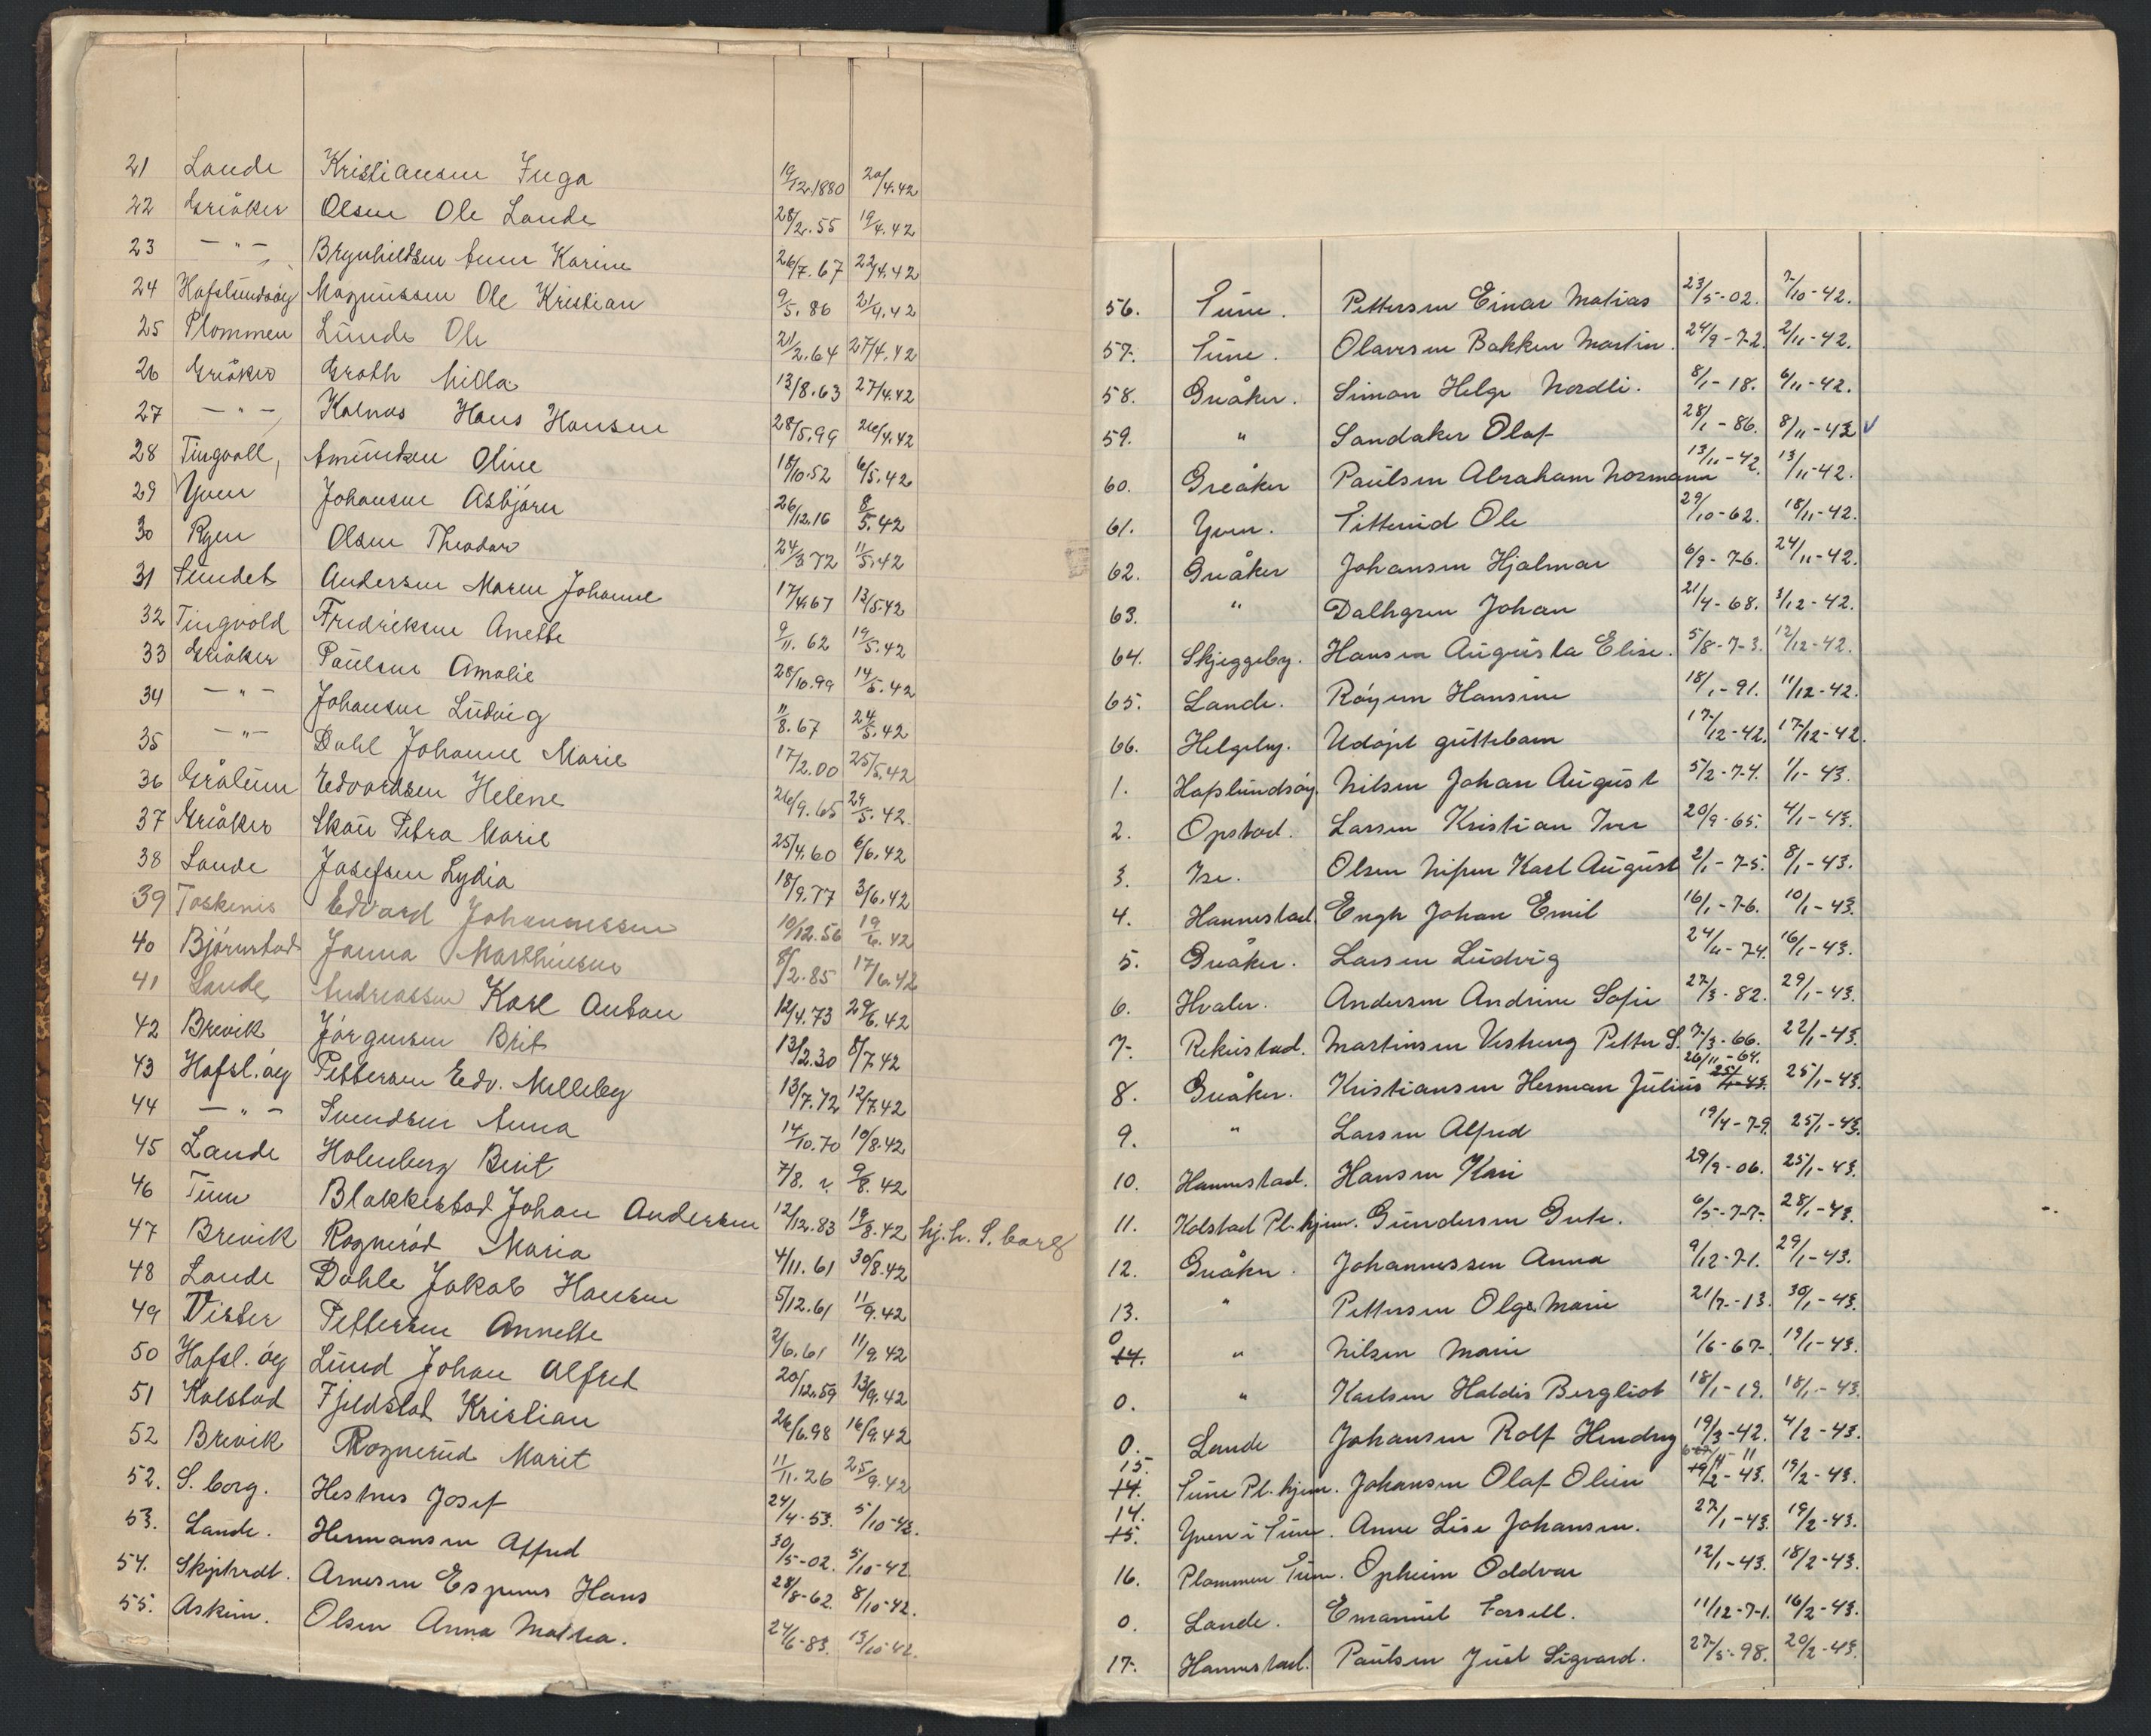 21 Lande Kristiansen Inga 19/12.1880 20/4.42
22 Greåker Olsen Ole Lande 28/2.55 19/4.42
23 — " — Brynhildsen Anne Karine 26/7.67 22/4.42
24 Hafslundsøy Magnussen Ole Kristian 9/5.86 21/4.42
25 Plommen Lunde Ole 21/2.64 27/4.42
26 Greåker Groth Milla 13/8.63 27/4.42
27 — " — Kalnas Hans Hansen 28/5.99 26/4.42
28 Tingvoll, Amundsen Oline 18/10.52 6/5.42
29 Yven Johansen Asbjørn 26/12.16 8/5.42
30 Rygen Olsen Theodor 24/3.72 11/5.42
31 Sundet Andersen Maren Johanne 17/4.67 13/5.42
32 Tingvold Fredriksen Anette 9/11.62 19/5.42
33 Greåker Paulsen Amalie 28/10.99 14/5.42
34 — " — Johansen Ludvig 11/8.67 24/5.42
35 — " — Dahl Johanne Marie 17/2.00 25/5.42
36 Grålum Edvardsen Helene 26/9.65 29/5.42
37 Greåker Skau Petra Marie 25/4.60 6/6.42
38 Lande Josefsen Lydia 18/9.77 3/6.42
39 Toskenes Edvard Johannessen 10/12.56 19/6.42
40 Bjørnstad Janna Marthinsen 8/2.85 17/6.42
41 Lande Andreassen Karl Anton 12/4.73 29/6.42
42 Brevik Jørgensen Brit 13/2.30 8/7.42
43 Hafsl.øy Pettersen Edv. Melleby 13/7.72 12/7.42
44 — " — Svendsen Anna 14/10.70 10/8.42
45 Lande Holenberg Berit 7/8. 9/8.42
46 Tune Blakkestad Johan Andersen 12/12.83 19/8.42 hj.h. S.borg
47 Brevik Rognerød Maria 4/11.61 30/8.42
48 Lande Dahle Jakob Hansen 5/12.61 11/9.42
49 Vister Pettersen Annette 2/6.61 11/9.42
50 Hafsl.øy Lund Johan Alfred 20/12.59 13/9.42
51 Kolstad Fjeldstad Kristian 26/6.98 16/9.42
52 Brevik Rognerud Marit 11/11.26 25/9.42
52. S.borg. Hestnes Josef 24/4-53. 5/10-42.
53. Lande. Hermansen Alfred 30/5-02. 5/10-42
54. Skjebredt. Arnesen Espenes Hans 28/8-62. 8/10-42.
55. Askim. Olsen Anna Mathea. 24/6-83. 13/10-42.
56. Tune. Pettersen Einar Matias 23/5-02. 7/10-42.
57. Tune. Olavesen Bakken Martin. 24/9-72. 2/11-42.
58. Greåker. Simon Helge Nordli. 8/1-18. 6/11-42.
59. " Sandaker Olaf 28/1-86. 8/11-42 ✓
60. Greåker Paulsen Abraham Normann 13/11-42. 13/11-42.
61. Yven. Titterud Ole 29/10-62. 18/11-42.
62. Greåker Johansen Hjalmar 6/9-76. 24/11-42.
63. " Dalhgren Johan 21/4-68. 3/12-42.
64. Skjeggeby. Hansen Augusta Elise. 5/8-73. 12/12-42.
65. Lande. Røyem Hansine 18/1-91. 11/12-42.
66. Helgeby. Udøpt guttebarn 17/12-42. 17/12-42.
1. Hafslundsøy. Nilsen Johan August 5/2-74. 1/1-43.
2. Opstad. Larsen Kristian Iver 20/9-65. 4/1-43.
3. Ise. Olsen Nipen Karl August 2/1-75. 8/1-43.
4. Hannestad Engh Johan Emil 16/1-76. 10/1-43.
5. Greåker. Larsen Ludvig 24/4-74. 16/1-43.
6. Hvaler. Andersen Andrine Sofie 27/3-82. 29/1-43.
7. Rekustad. Martinsen Visteng Petter S. 7/3-66. 22/1-43.
8. Greåker. Kristiansen Herman Julius 26/11-64. 25/1-43. 25/1-43.
9. " Larsen Alfred 19/4-79. 25/1-43.
10. Hannestad. Hansen Kari 29/9-06. 25/1-43.
11. Kolstad Pl.hjem. Gundersen Gute. 6/5-77. 28/1-43.
12. Greåker. Johannessen Anna 9/12-71. 29/1-43.
13. " Pettersen Olga Marie 21/7-13. 30/1-43.
0 14. " Nilsen Marie 1/6-67. 19/1-43.
0. " Karlsen Haldis Bergliot 18/1-19. 18/1-43.
0. Lande Johansen Rolf Hendry 19/3-42. 4/2-43.
15. 14. Tune Pl.hjem. Johansen Olaf Olein 19/2-43. 19/2-43.
14. 15. Yven i Tune. Anne Lise Johansen. 27/1-43. 19/2-43.
16. Plommen Tune. Opheim Oddvar 12/1-43. 18/2-43.
0. Lande. Emanuel Forsell. 11/12-71. 16/2-43.
17. Hannestad. Paulsen Juel Sigvard. 27/5-98. 20/2-43.